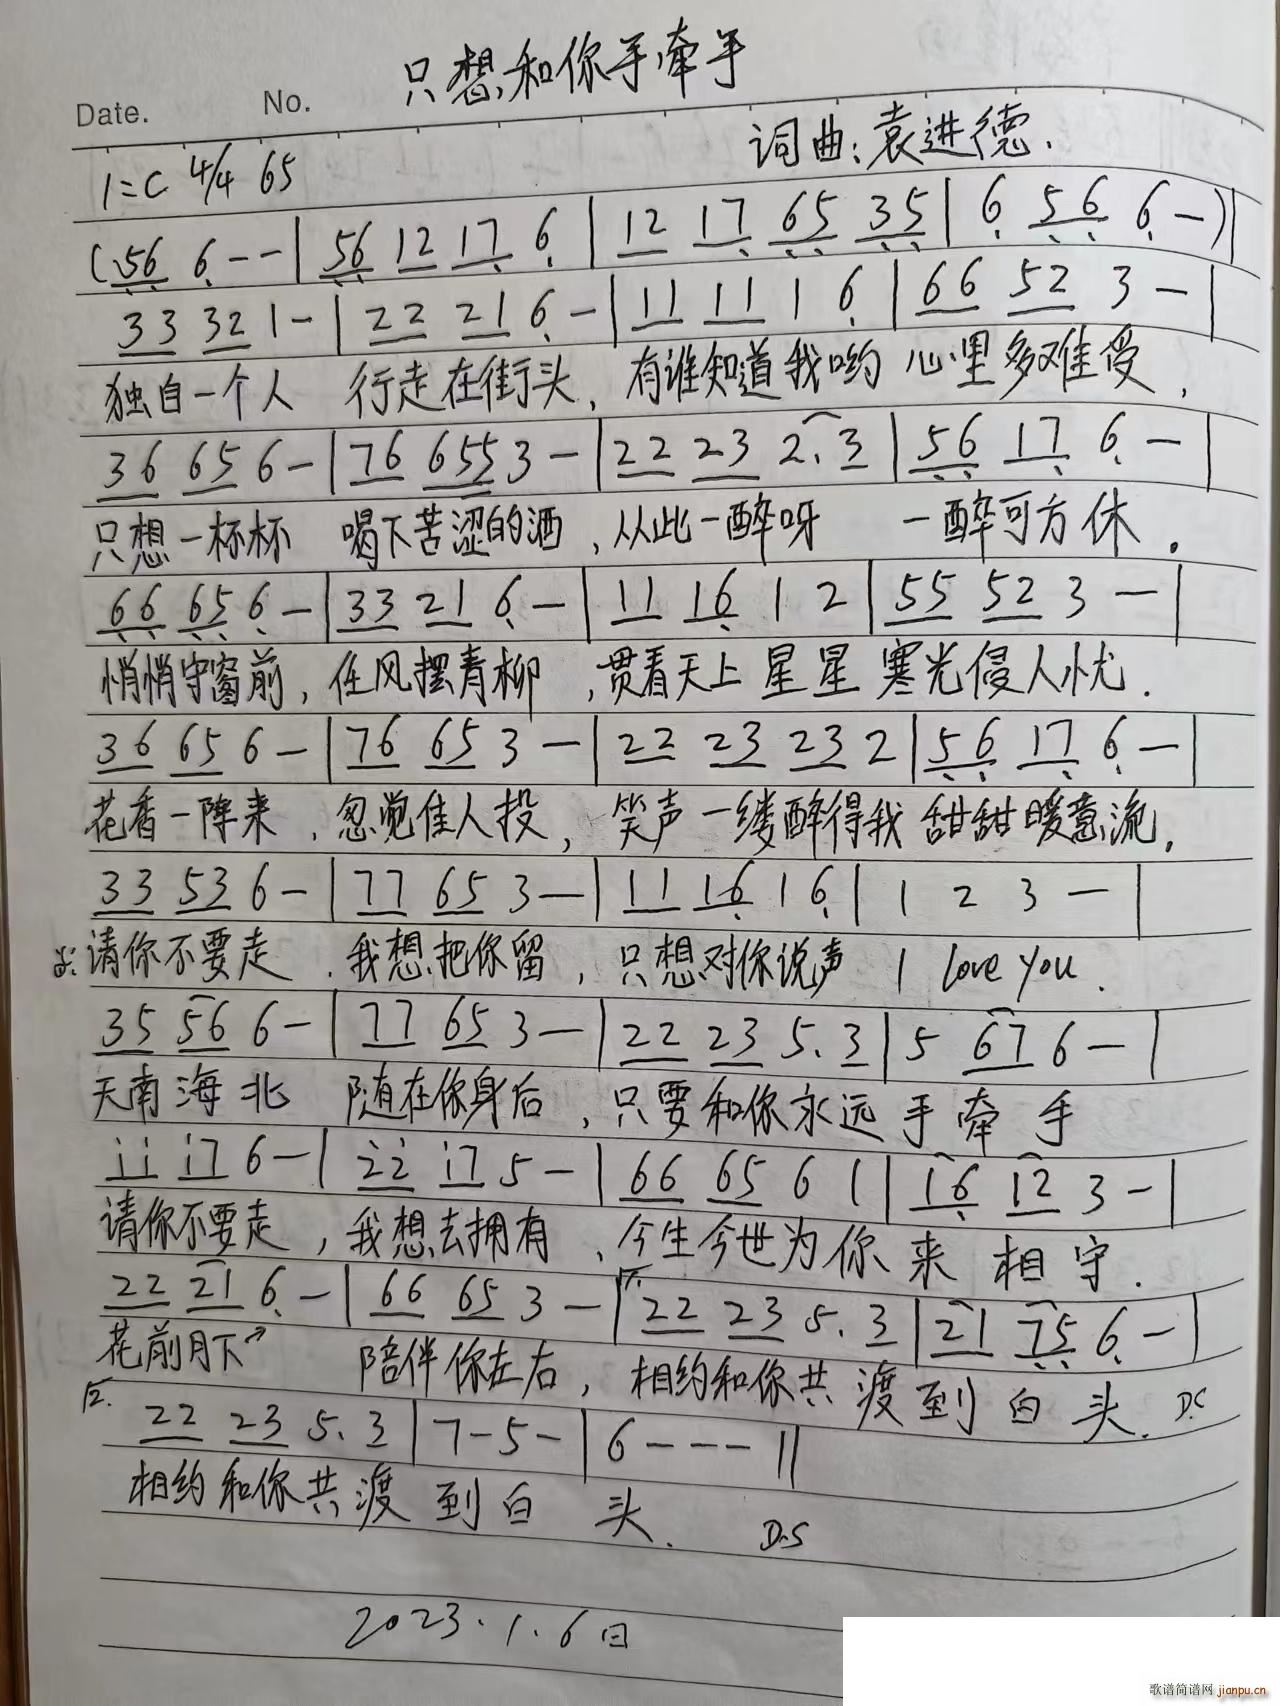 只想和你手牵手
Date. No.
词曲:袁进德.
1=C 4/4 65
(56 6--|56 12 17 6|12 17 65 35|6 56 6-)|
33 321-|22 21 6-|11 11 1 6|66 52 3-|
独自一个人 行走在街头, 有谁知道我哟 心里多难受,
36 65 6-|76 655 3-|22 23 2.3|56 17 6-|
只想一杯杯 喝下苦涩的酒,从此一醉呀 一醉可方休.
66 65 6-|33 21 6-|11 16 1 2|55 52 3-|
悄悄守窗前,任风摆青柳,贯看天上星星 寒光侵人忧.
36 65 6-|76 65 3-|22 23 23 2|56 17 6-|
花香一阵来,忽觉佳人投,笑声一缕醉得我 甜甜暖意流.
33 53 6-|77 65 3-|11 16 1 6|1 2 3-|
请你不要走.我想把你留,只想对你说声 I love you.
35 56 6-|77 65 3-|22 23 5.3|5 67 6-|
天南海北 随在你身后,只要和你永远手牵手
11 17 6-|22 17 5-|66 65 6 1|16 12 3-|
请你不要走,我想去拥有.今生今世为你来相守.
22 21 6-|66 65 3-|1.22 23 5.3|21 75 6-|
花前月下 陪伴你左右,相约和你共渡到白头. D.S
2.
22 23 5.3|7-5-|6---||
相约和你共渡到白头. D.S
2023.1.6日
歌谱简谱网 jianpu.cn